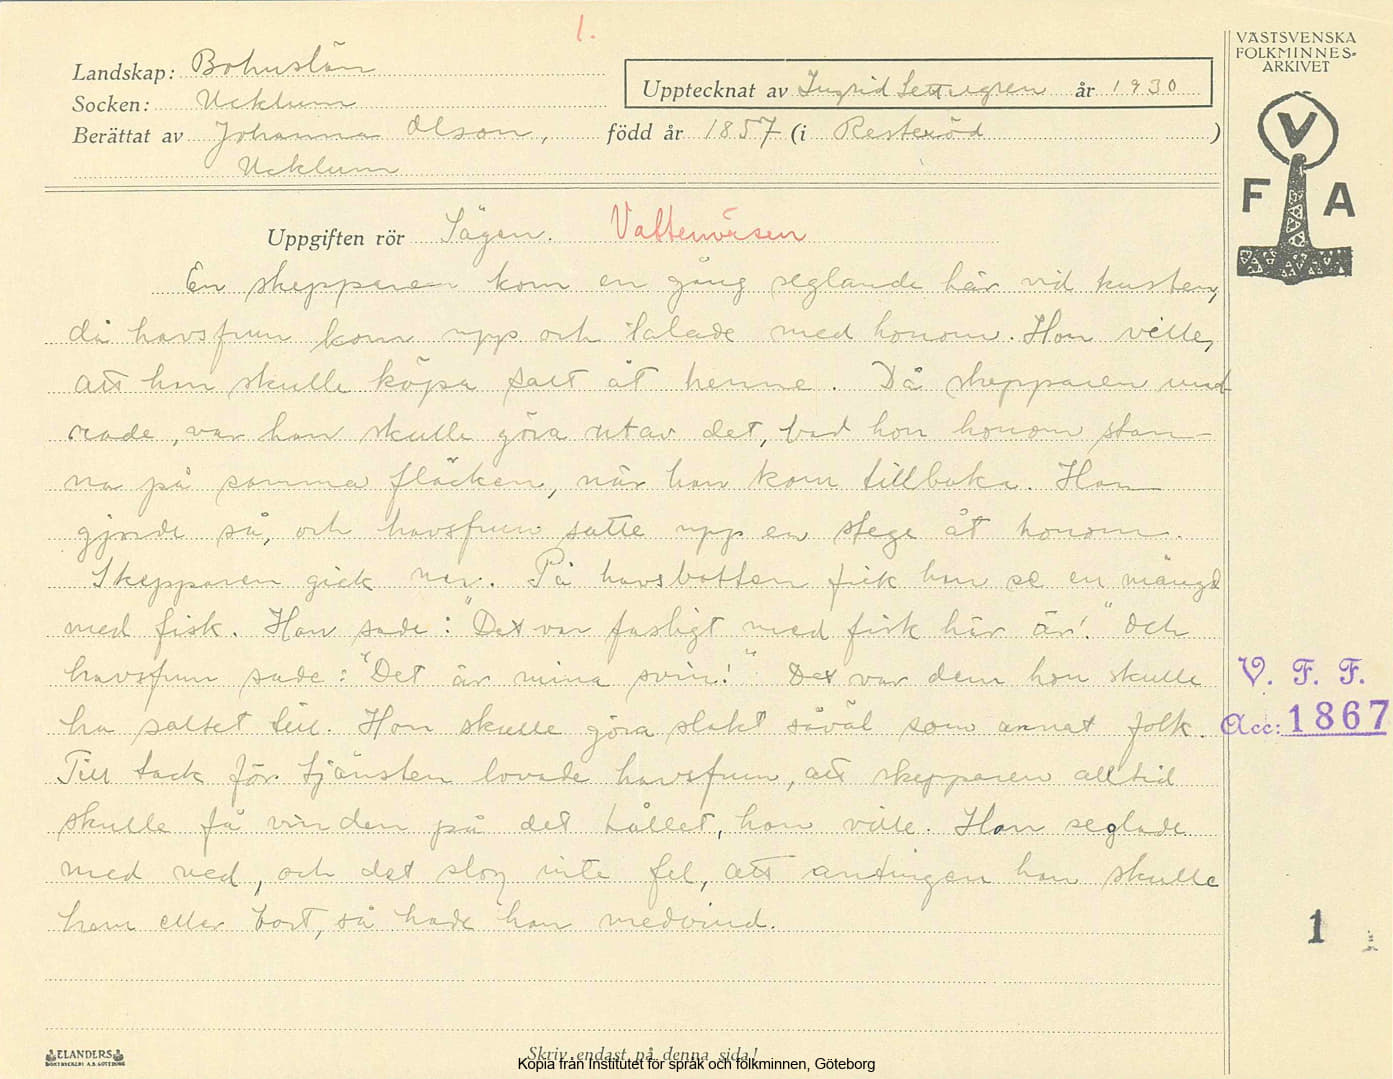 1.
VÄSTSVENSKA
FOLKMINNES-
ARKIVET
Landskap: Bohuslän
Socken: Ucklum
Upptecknat av Ingrid år 1930
Berättat av Johanna Olson, född år 1857 (i Resteröd )
Ucklum
V
F A
Uppgiften rör Sägen. Vattenväsen
En skepparen kom en gång seglande här vid kusten,
då havsfrun kom upp och talade med honom. Hon ville,
att han skulle köpa salt åt henne. Då skepparen und-
rade, var hon skulle göra utav det, bad hon honom stan-
na på samma fläcken, när han kom tillbaka. Han
gjorde så, och havsfrun satte upp en stege åt honom.
Skepparen gick ner. På havsbotten fick han se en mängd
med fisk. Han sade: "Det var fasligt med fisk här är!" Och
havsfrun sade: "Det är mina svin!" Det var dem hon skulle
ha saltet till. Hon skulle göra slakt såväl som annat folk.
Till tack för tjänsten lovade havsfrun, att skepparen alltid
skulle få vinden på det hållet, han ville. Han seglade
med ved, och det slog inte fel, att antingen han skulle
hem eller bort, så hade han medvind.
V. F. F.
Acc: 1867
1
ELANDERS
BOKTRYCKERI A.B. GÖTEBORG
Skriv endast på denna sida!
Kopia från Institutet för språk och folkminnen, Göteborg